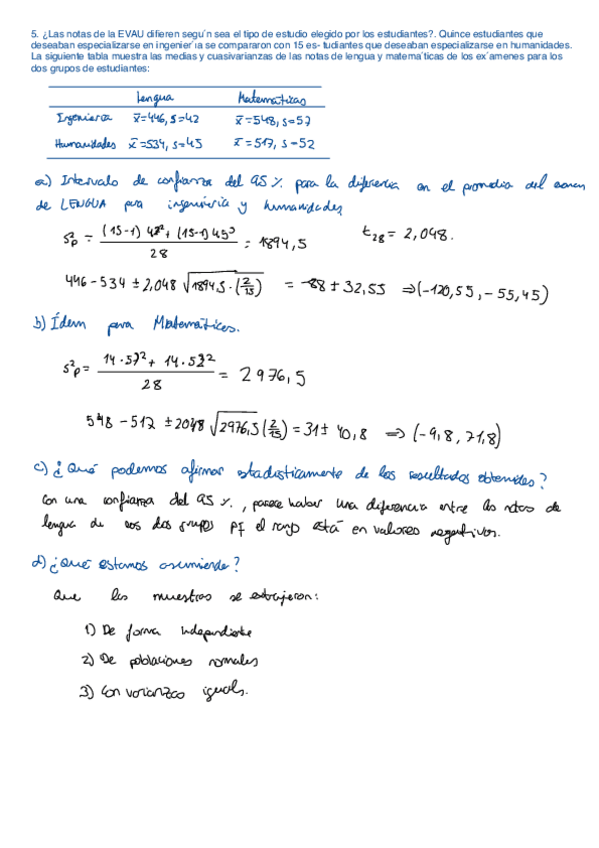 5. ¿Las notas de la EVAU difieren segu´n sea el tipo de estudio elegido por los estudiantes?. Quince estudiantes que
deseaban especializarse en ingenier´ıa se compararon con 15 es- tudiantes que deseaban especializarse en humanidades.
La siguiente tabla muestra las medias y cuasivarianzas de las notas de lengua y matema´ticas de los ex´amenes para los
dos grupos de estudiantes:
Lengua Matemáticas
Ingeniería x̄=446, s=42 x̄=548, s=57
Humanidades x̄=534, s=45 x̄=517, s=52
a) Intervalo de confianza del 95% para la diferencia en el promedio del examen
de LENGUA para ingeniería y humanidades
s²p = (15-1) 42² + (15-1) 45² / 28 = 1894,5 t28 = 2,048.
446-534 ± 2,048 √1894,5·(2/15) = -88 ± 32,55 ⇒ (-120,55, -55,45)
b) Ídem para Matemáticas.
s²p = 14·57² + 14·52² / 28 = 2976,5
548-517 ± 2048 √2976,5 (2/15) = 31 ± 40,8 ⇒ (-9,8, 71,8)
c) ¿Qué podemos afirmar estadísticamente de los resultados obtenidos?
Con una confianza del 95%, parece haber una diferencia entre las notas de
lengua de los dos grupos pq el rango está en valores negativos.
d) ¿Qué estamos asumiendo?
Que las muestras se extrajeron:
1) De forma independiente
2) De poblaciones normales
3) Con varianzas iguales.